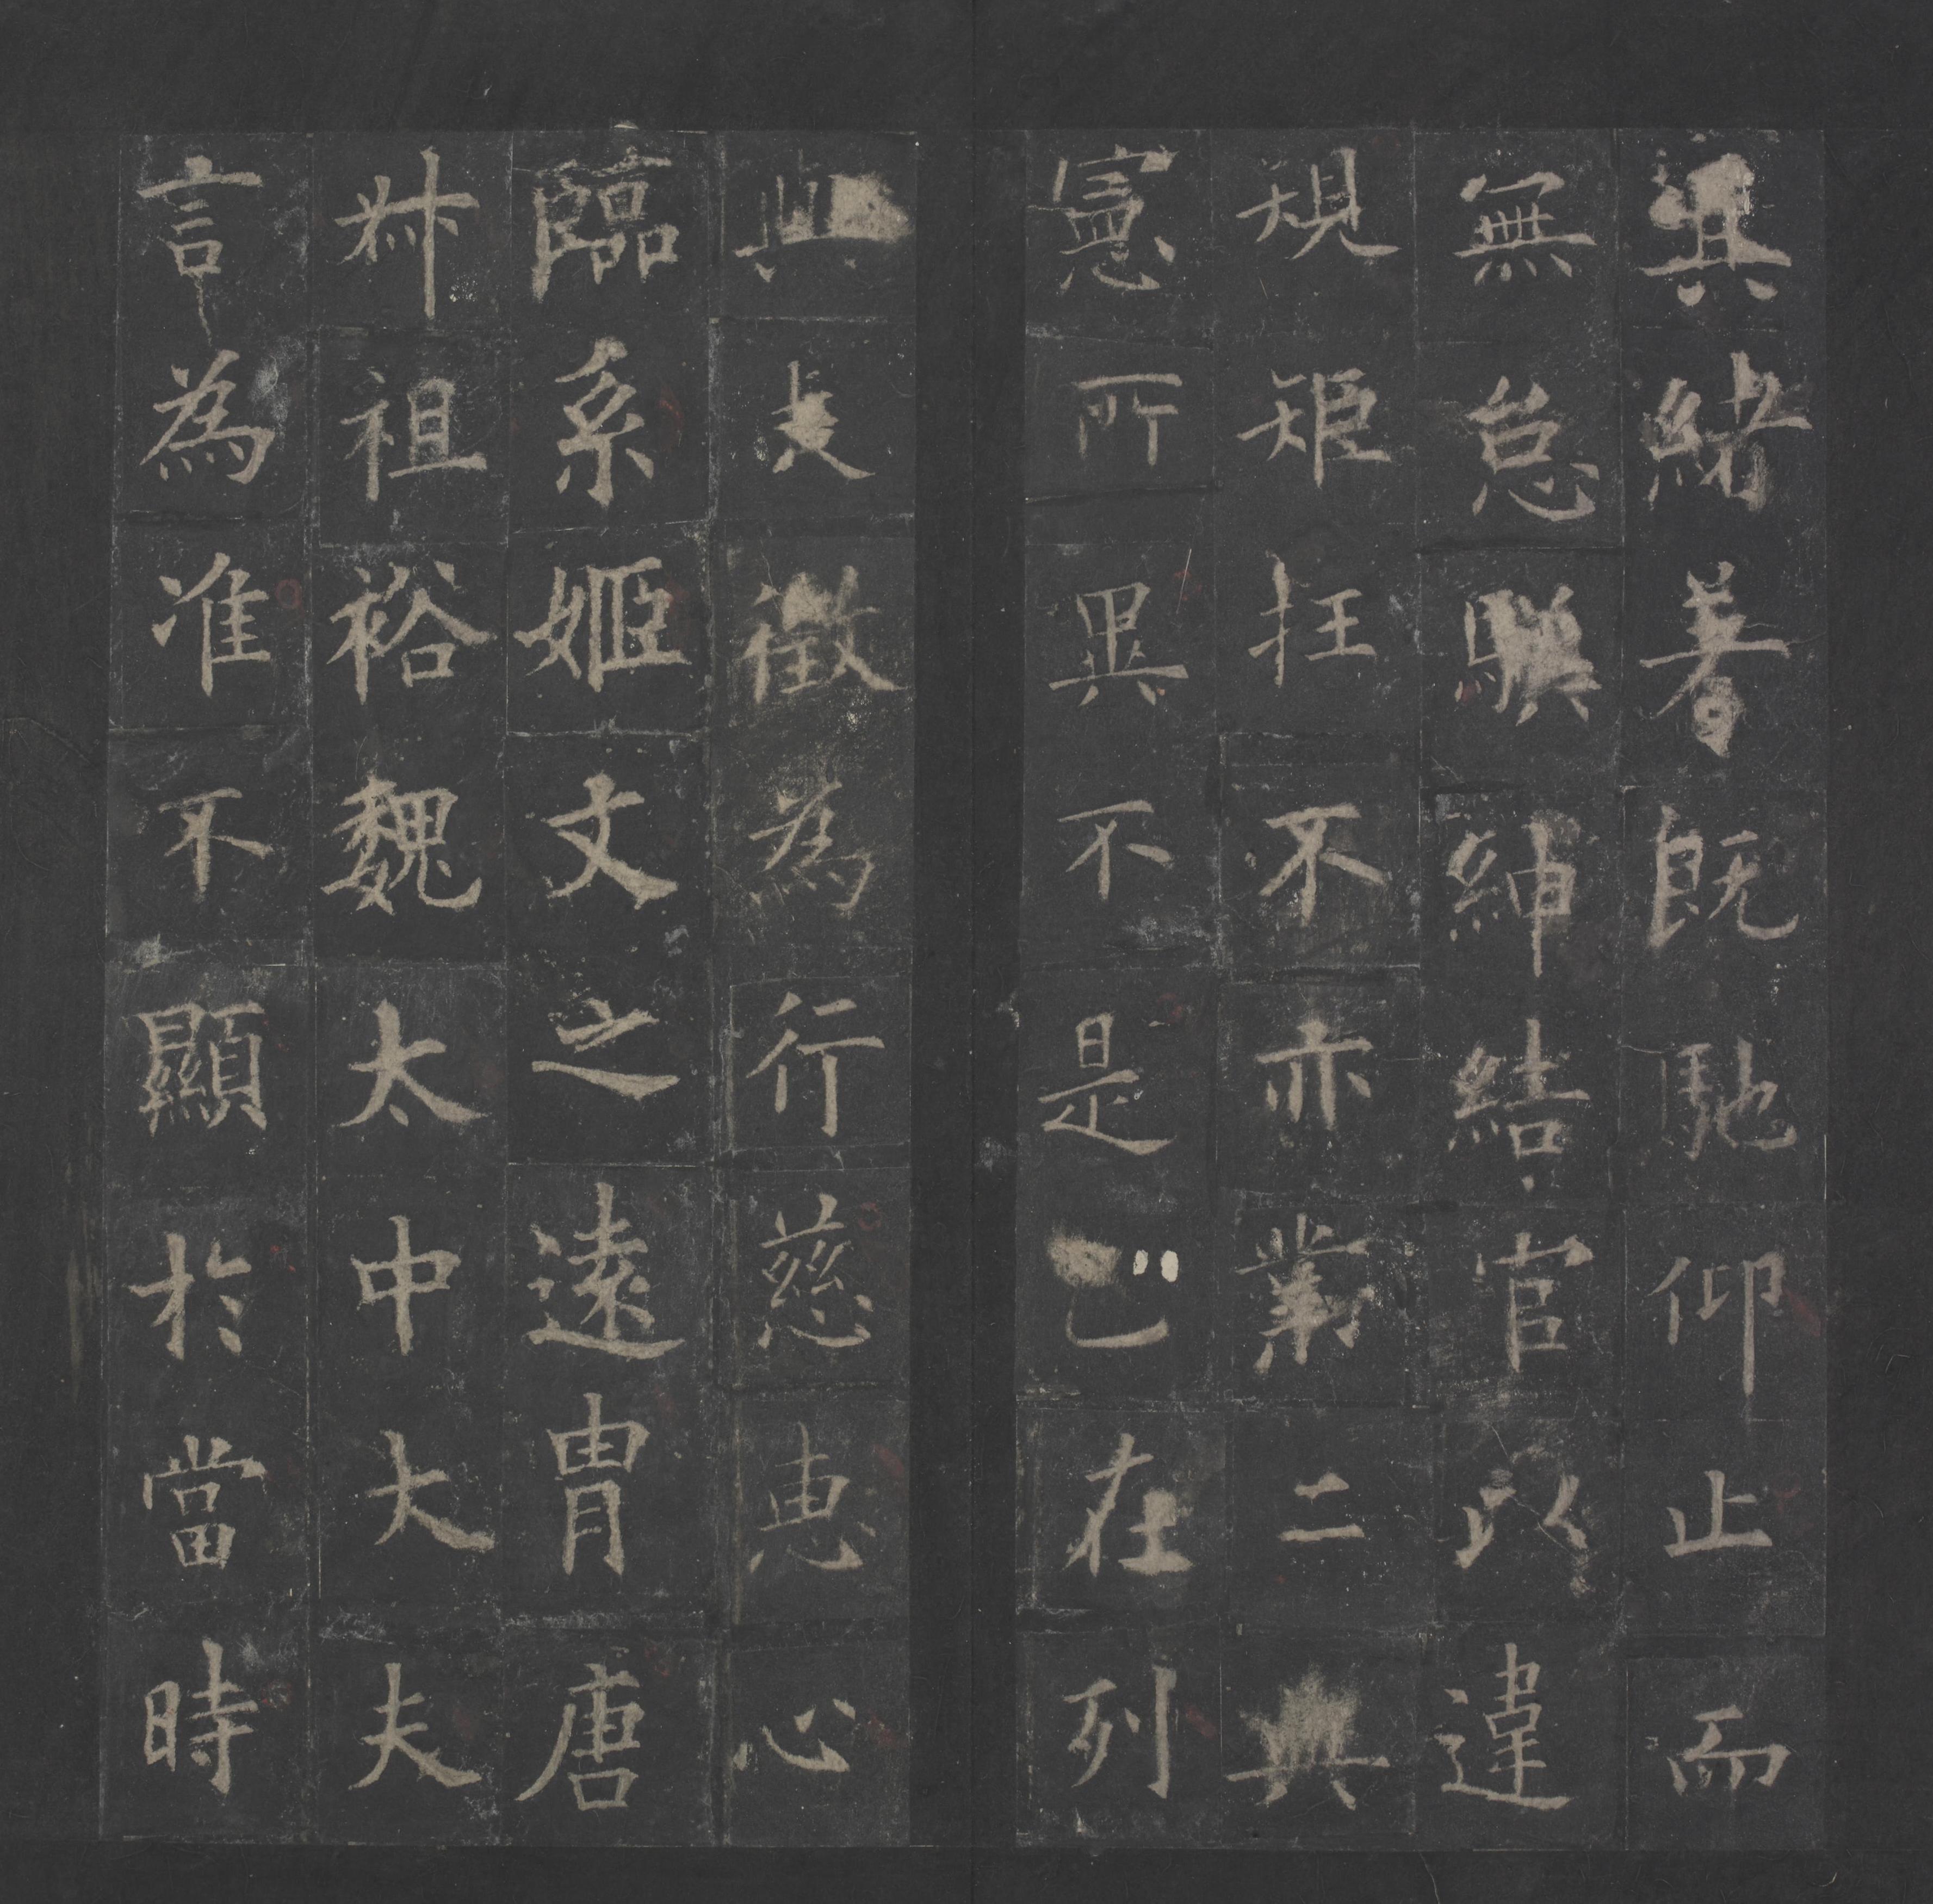 其緒著既馳仰止而
無怠紳結官以違
規矩抂不亦業二典
憲所異不是在列
徵為行慈惠心
臨系姬文之遠胄唐
叔祖裕魏太中大夫
言為准不顯於當時